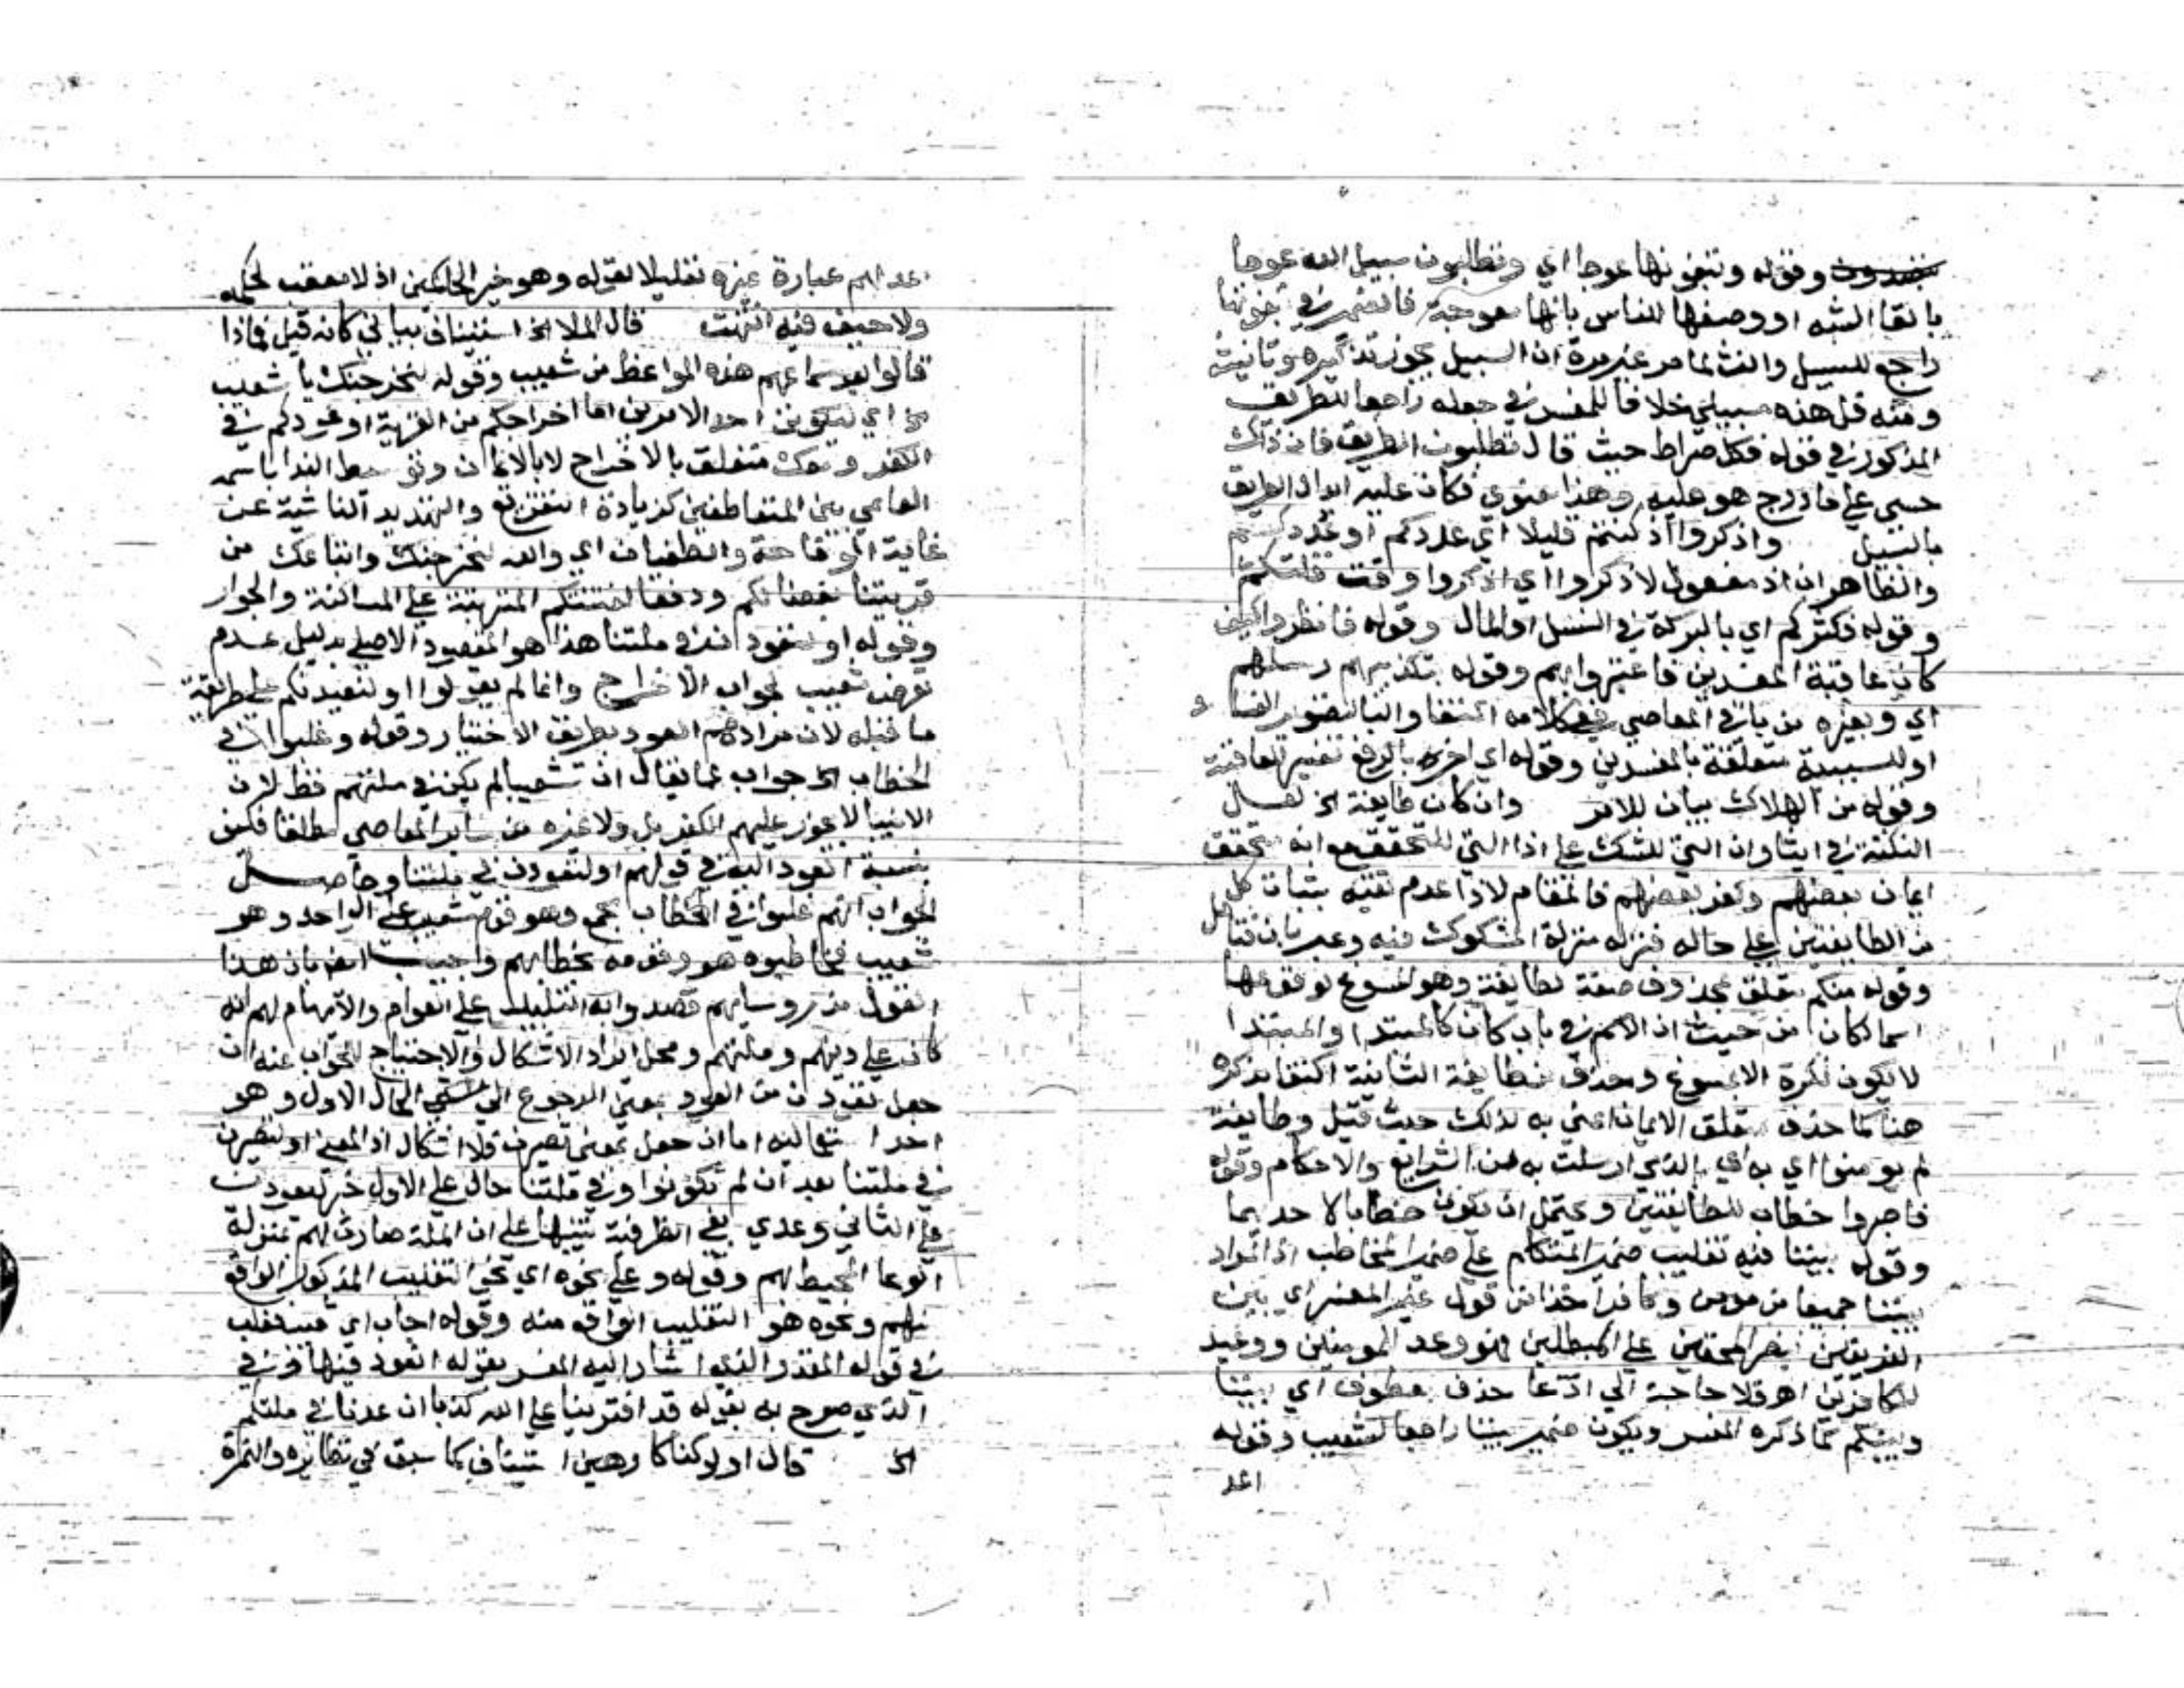 وقوله وتبغونها عوجا اي وتطلبون سبيل الله عوجا
بالقا الشبه او وصفها للناس بانها معوجة فالضمير في تبغونها
راجع للسبيل وانث لما مر غير مرة ان السبيل يجوز تذكيره وتانيثه
ومنه قل هذه سبيلي خلافا للمفسر في جعله راجعا للطريق
المذكور في قوله بكل صراط حيث قال تطلبون الطريق فان ذلك
حسي على ما درج هو عليه وهذا معنوي فكان عليه ابدال الطريق
بالسبيل واذكروا اذ كنتم قليلا اي عددكم او عددكم
والظاهر ان اذ مفعول لاذكروا اي اذكروا وقت قلتكم
وقوله فكثركم اي بالبركة في النسل او المال وقوله فانظروا كيف
كان عاقبة المفسدين فاعتبروا بهم وقوله بتكذيبهم رسلهم
اي وبغيره من باقي المعاصي ففي كلامه اكتفا والبا لتصوير الفساد
او للسببية متعلقة بالمفسدين وقوله اي اخر بالرفع تفسير لعاقبة
وقوله من الهلاك بيان للامر وان كان طايفة الخ لعل
النكتة في ايثار ان التي للشك على اذا التي للتحقق مع انه تحقق
ايمان بعضهم وكفر بعضهم فالمقام لاذا عدم تيقنه بثبات كل
من الطايفتين على حاله فنزله منزلة المشكوك فيه وعبر بان فتامل
وقوله منكم متعلق بمحذوف صفة لطايفة وهو المسوغ لوقوعها
اسما لكان من حيث ان الاسم في باب كان كالمبتدا والمبتدا
لا يكون نكرة الا بمسوغ وحذف لطايفة الثانية اكتفا بذكره
هنا كما حذف متعلق الايمان اعني به لذلك حيث قيل وطايفة
لم يومنوا اي به اي بالذي ارسلت به من الشرايع والاحكام وقوله
فاصبروا خطاب للطايفتين ويحتمل ان يكون خطابا لاحديهما
وقوله بيننا فيه تغليب ضمير المتكلم على ضمير المخاطب اذ المراد
بيننا جميعا من مومن وكافر اخذا من قول غير المفسر اي بين
الفريقين بنصر المحقين على المبطلين فهو وعد للمومنين ووعيد
للكافرين اهـ فلا حاجة الى ادعا حذف معطوف اي بيننا
وبينكم كما ذكره المفسر ويكون ضمير بيننا راجعا لشعيب وقوله
اعد
اعدلهم عبارة غيره تعليلا لقوله وهو خير الحاكمين اذ لا معقب لحكمه
ولا حيف فيه انتهت قال الملا الخ استيناف بياني كانه قيل فماذا
قالوا بعد سماعهم هذه المواعظ من شعيب وقوله لنخرجنك يا شعيب
الخ اي ليكونن احد الامرين اما اخراجكم من القرية او عودكم في
الكفر ومعك متعلق بالاخراج لا بالايمان وتوسط الندا باسمه
العلمي بين المتعاطفين لزيادة التقريع والتهديد الناشية عن
غاية الوقاحة والطغيان اي والله لنخرجنك واتباعك من
قريتنا بغضا لكم ودفعا لفتنتكم المترتبة على المساكنة والجوار
وقوله او لتعودن في ملتنا هذا هو المقصود الاصلي بدليل عدم
تعرض شعيب لجواب الاخراج وانما لم يقولوا او لنعيدنكم على طريقة
ما قبله لان مرادهم العود بطريق الاختيار وقوله وغلبوا في
الخطاب الخ جواب عما يقال ان شعيبا لم يكن في ملتهم قط لان
الانبيا لا يجوز عليهم الكفر بل ولا غيره من ساير المعاصي مطلقا فكيف
نسبة العود اليه في قولهم او لتعودن في ملتنا وحاصل
الجواب انهم غلبوا في الخطاب الجمع وهو قوم شعيب على الواحد وهو
شعيب فخاطبوه هو وقومه بخطابهم واجيب ايضا بان هذا
القول من روسايهم قصدوا به التلبيس على العوام والايهام لهم انه
كان على دينهم وملتهم ومحل ايراد الاشكال والاحتياج للجواب عنه ان
جعل تعودن من العود بمعنى الرجوع الى الحال الاول وهو
احد استعماليه اما ان جعل بمعنى تصيرن فلا اشكال اذ المعنى او لتصيرن
في ملتنا بعد ان لم تكونوا وفي ملتنا حال على الاول خبر لتعودن
على الثاني وعدي بفي الظرفية تنبيها على ان الملة صارت لهم بمنزلة
الوعا المحيط بهم وقوله وعلى نحوه اي نحو التغليب المذكور الواقع
منهم ونحوه هو التغليب الواقع منه وقوله اجاب اي فيغلب
في قوله المقدر الذي اشار اليه المفسر بقوله انعود فيها وفي
الذي صرح به بقوله قد افترينا على الله كذبا ان عدنا في ملتكم
الخ قال اولو كنا كارهين استيناف كما سبق في نظايره والهمزة